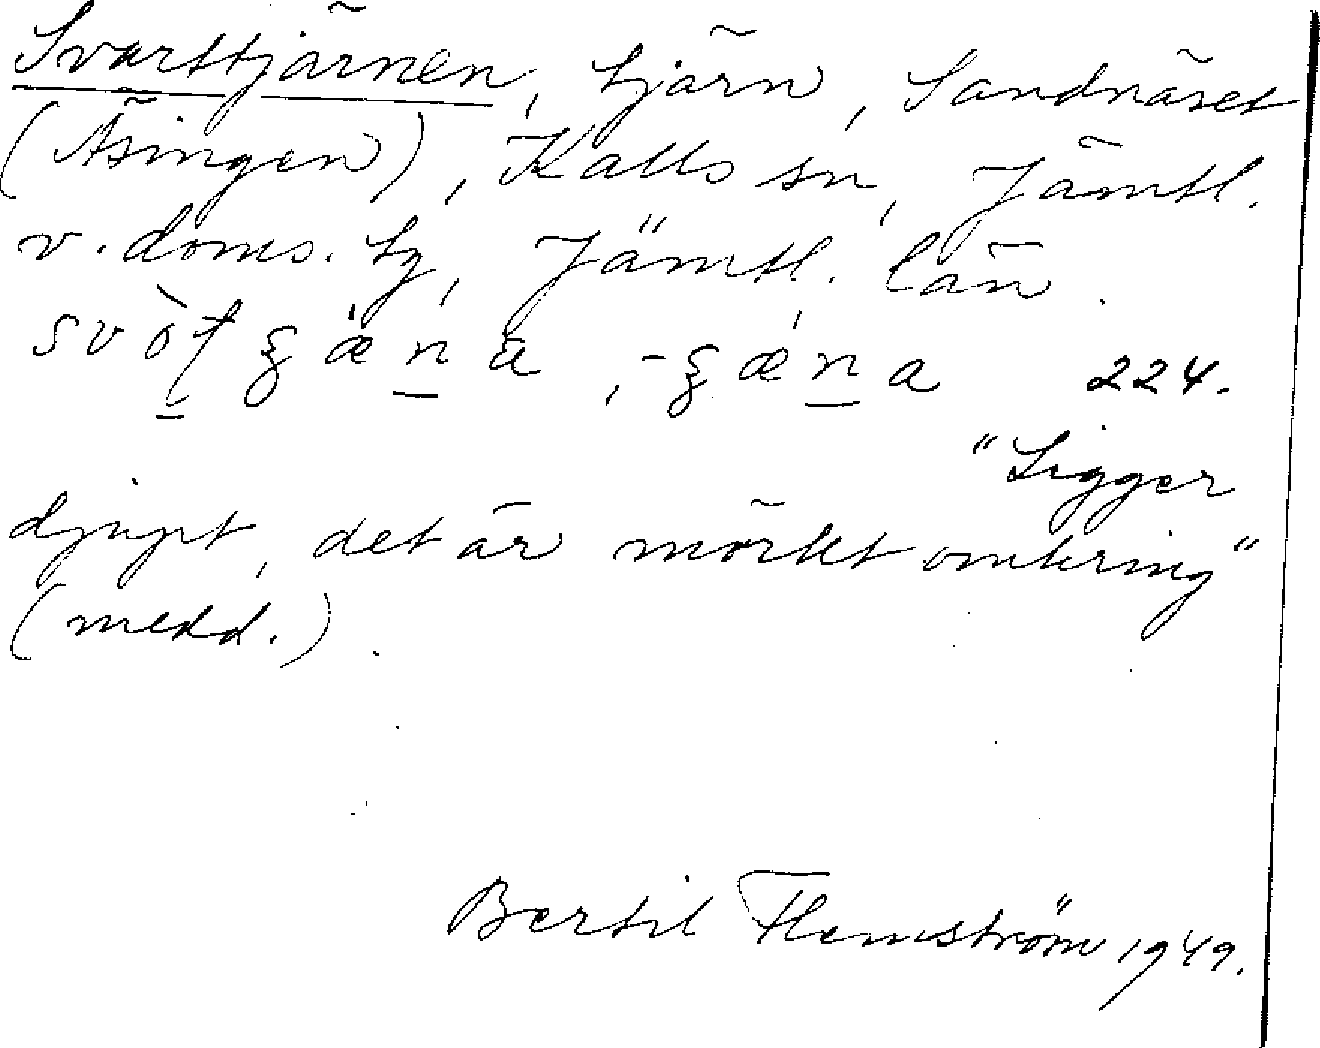 Svarttjärnen, tjärn, Sandnäset
(Äsingen), Kalls sn, Jämtl.
v. doms. tg, Jämtl. län.
224.
"Ligger
djupt, det är mörkt omkring"
(medd.).
Bertil Flemström 1949.